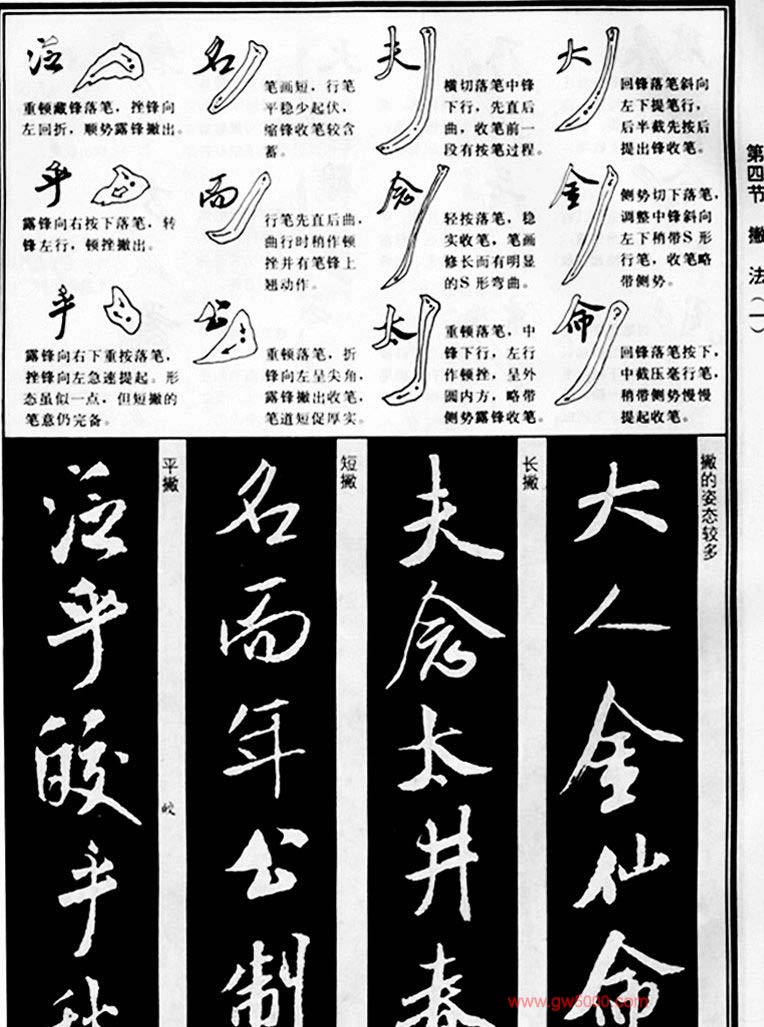 第四节 撇法(一)
大
回锋落笔斜向
左下提笔行，
后半截先按后
提出锋收笔。
夫
横切落笔中锋
下行，先直后
曲，收笔前一
段有按笔过程。
名
笔画短，行笔
平稳少起伏，
缩锋收笔较含
蓄。
泛
重顿藏锋落笔，挫锋向
左回折，顺势露锋撇出。
金
侧势切下落笔，
调整中锋斜向
左下稍带S形
行笔，收笔略
带侧势。
念
轻按落笔，稳
实收笔，笔画
修长而有明显
的S形弯曲。
而
行笔先直后曲，
曲行时稍作顿
挫并有笔锋上
翘动作。
乎
露锋向右按下落笔，转
锋左行，顿挫撇出。
命
回锋落笔按下，
中截压毫行笔，
稍带侧势慢慢
提起收笔。
太
重顿落笔，中
锋下行，左行
作顿挫，呈外
圆内方，略带
侧势露锋收笔。
公
重顿落笔，折
锋向左呈尖角，
露锋撇出收笔，
笔道短促厚实。
乎
露锋向右下重按落笔，
挫锋向左急速提起。形
态虽似一点，但短撇的
笔意仍完备。
撇的姿态较多
大人金仙命
长撇
夫念太井春
短撇
名而年公制
平撇
泛乎皎乎秋
皎
www.gw5000.com